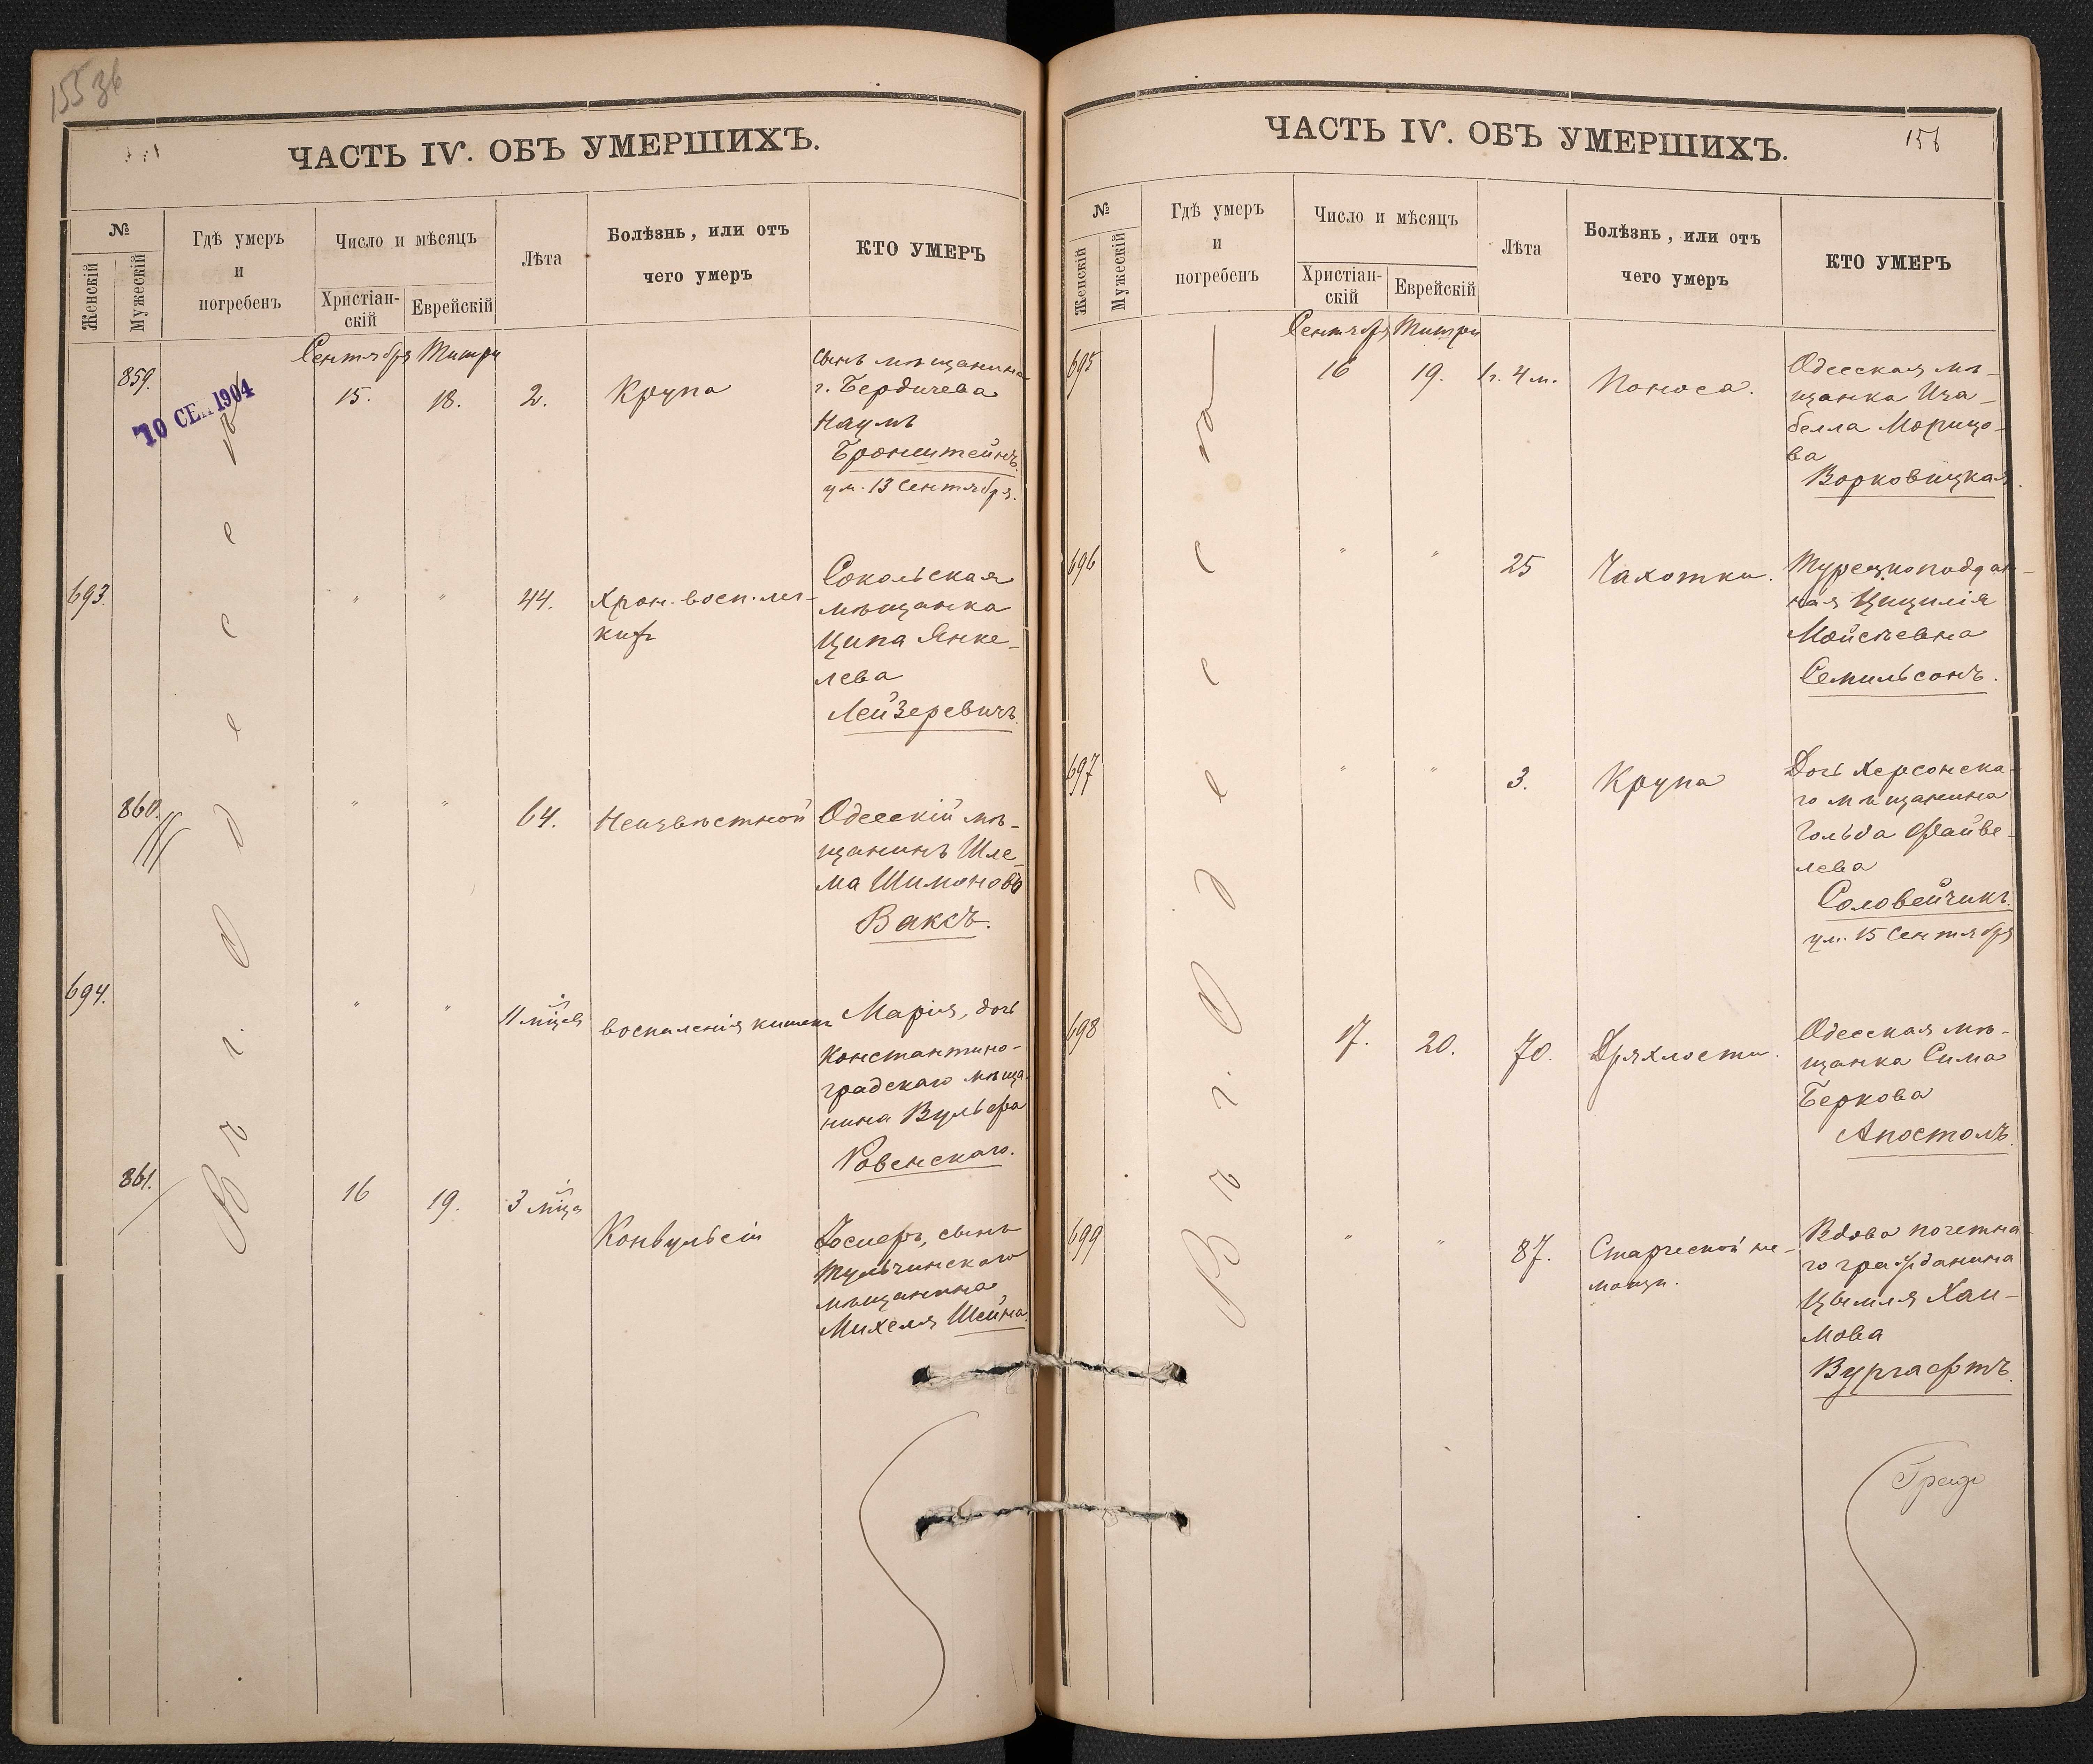 155 зв
ЧАСТЬ IV. ОБЪ УМЕРШИХЪ.
№
Женскій
Мужескій
Гдѣ умеръ
и
погребенъ
Число и мѣсяцъ
Христіан-
скій
Еврейскій
Лѣта
Болѣзнь, или отъ
чего умеръ
КТО УМЕРЪ
Сентября Тишри
859.
15.
18.
2.
Крупа
сынъ мѣщанина
г. Бердичева
Наумъ
Бронштейнъ.
ум. 13 Сентября.
СЕН 1904
693.
"
"
44.
Хрон. восп. лег-
кихъ
Сокольская
мѣщанка
Ципа Янке-
лева
Лейзеревичъ.
860.
"
"
64.
Неизвѣстной
Одесскій мѣ-
щанинъ Шле-
ма Шимоновъ
Ваксъ.
694.
"
"
11 мцевъ
воспаленія кишекъ
Марія, дочь
Константино-
градскаго мѣща-
нина Вульфа
Ровенскаго.
861.
16
19.
3 мца
Конвульсіи
Іосифъ, сынъ
Тульчинскаго
мѣщанина
Михеля Шейна.
Въ г. Одессѣ
ЧАСТЬ IV. ОБЪ УМЕРШИХЪ.
156
№
Женскій
Мужескій
Гдѣ умеръ
и
погребенъ
Число и мѣсяцъ
Христіан-
скій
Еврейскій
Лѣта
Болѣзнь, или отъ
чего умеръ
КТО УМЕРЪ
Сентября Тишри
695
16
19.
1г. 4 м.
Поноса.
Одесская мѣ-
щанка Иза-
белла Морицо-
ва
Ворковицкая.
696
"
"
25
Чахотки.
Турецкоподдан-
ная Цицилія
Мойсѣевна
Семильсонъ.
697
"
"
3.
Крупа
Дочь Херсонска-
го мѣщанина
Гольда Файве-
лева
Соловейчикъ.
ум. 15 Сентября
698
17.
20.
70.
Дряхлости.
Одесская мѣ-
щанка Сима
Беркова
Апостолъ.
699
"
"
87.
Старческой не-
мощи.
Вдова почетна-
го гражданина
Цымля Хаи-
мова
Вургафтъ.
Въ г. Одессѣ